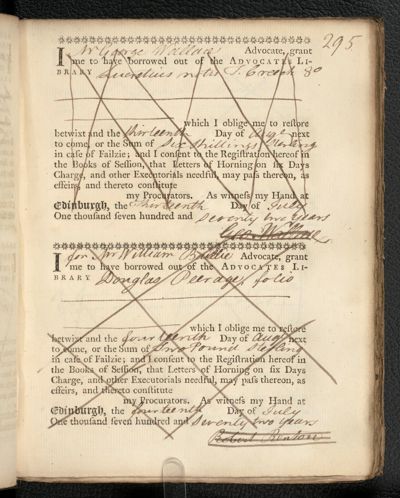 295
I Mr George Wallace Advocate, grant
me to have borrowed out of the ADVOCATES LI-
BRARY
which I oblige me to restore
betwixt and the thirteenth Day of Augt next
to come, or the Sum of Six Shillings Sterling
in case of Failzie; and I consent to the Registration hereof in
the Books of Session, that Letters of Horning on six Days
Charge, and other Executorials needful, may pass thereon, as
effeirs, and thereto constitute
my Procurators. As witness my Hand at
Edinburgh, the Thirteenth Day of July
One thousand seven hundred and seventy two years
Geo: Wallace
I for Mr William Baillie Advocate, grant
me to have borrowed out of the ADVOCATES LI-
BRARY Douglas Peerage, folio
which I oblige me to restore
betwixt and the fourteenth Day of Augt next
to come, or the Sum of two Pound Sterling
in case of Failzie; and I consent to the Registration hereof in
the Books of Session, that Letters of Horning on six Days
Charge, and other Executorials needful, may pass thereon, as
effeirs, and thereto constitute
my Procurators. As witness my Hand at
Edinburgh, the fourteenth Day of July
One thousand seven hundred and seventy two years
Robert Renton